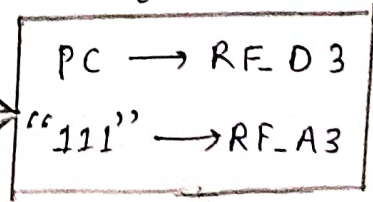 PC → RF_D3
"111" → RF_A3